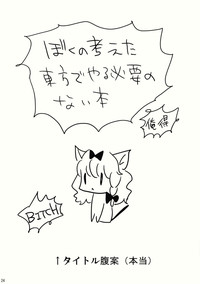 ぼくの考えた
東方でやる必要の
ない本
俺得
BITCH
↑タイトル腹案（本当）